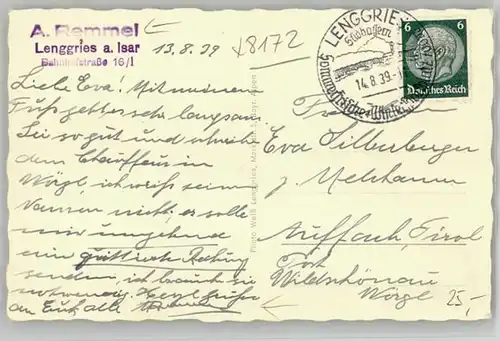 A. Remmel
Lenggries a. Isar
Bahnhofstraße 16/I
13.8.39
8172
LENGGRIES
Südbayern
14.8.39
6 6
Deutsches Reich
Liebe Eva! Mit meinem
Fuß geht es sehr langsam.
Sei so gut und schreibe
dem Chauffeur in
Wörgl, ich weiß seinen
Namen nicht, er solle
mir umgehend
eine quittierte Rechnung
senden, ich brauch sie
notwendig. Herzl. Grüße
an Euch alle
Eva Silberberger
Auffach, Tirol
Post
Wildschönau
Wörgl
25,-